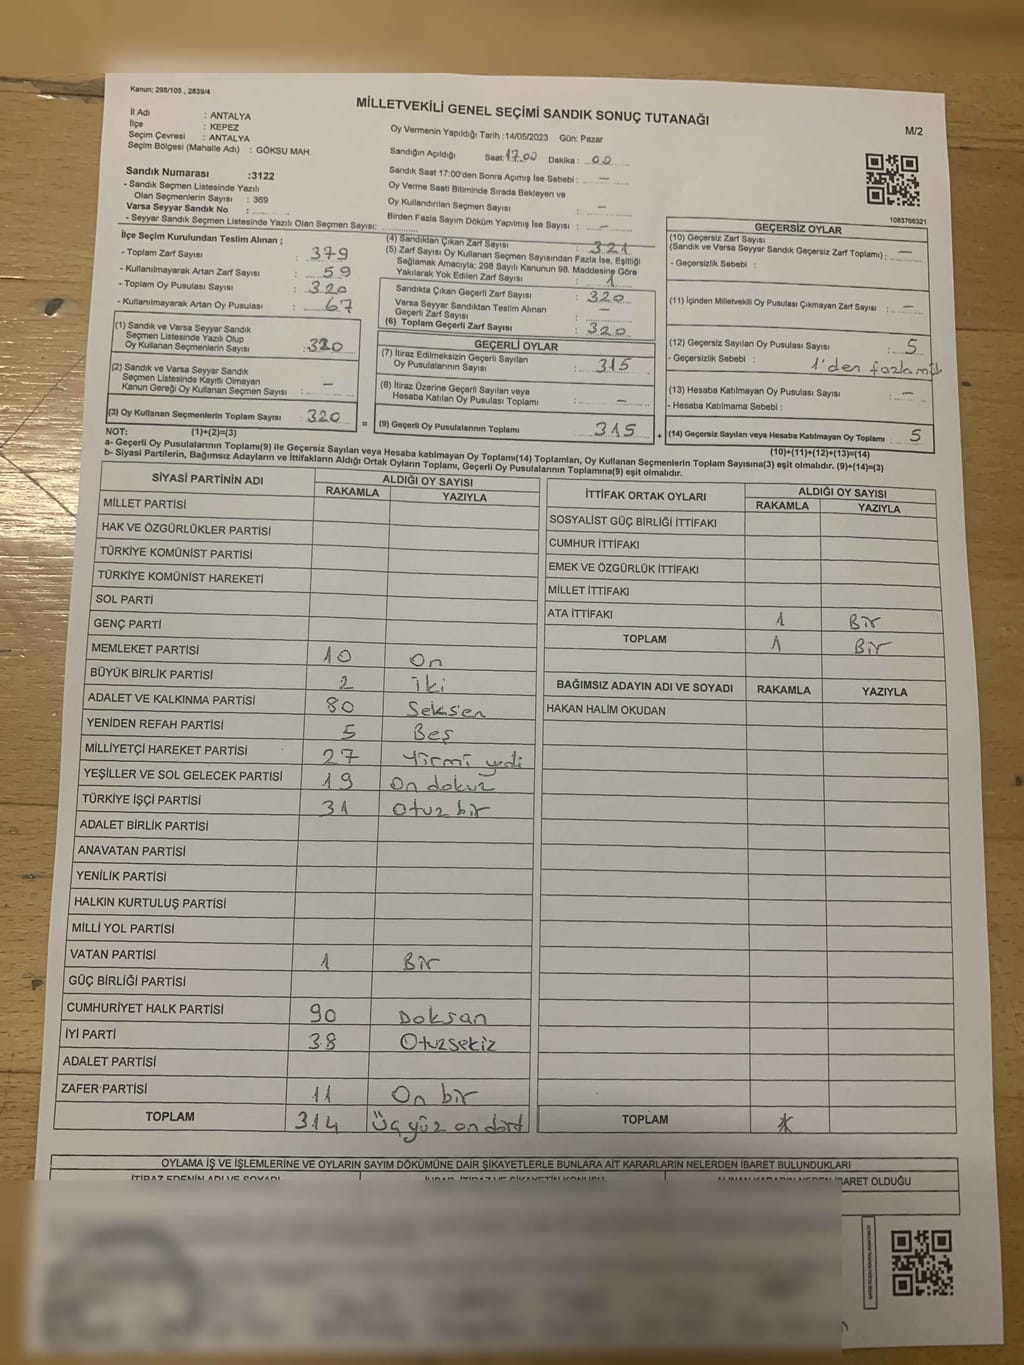 Kanun; 298/105 , 2839/4
MİLLETVEKİLİ GENEL SEÇİMİ SANDIK SONUÇ TUTANAĞI
M/2
İl Adı : ANTALYA
İlçe : KEPEZ
Seçim Çevresi : ANTALYA
Seçim Bölgesi (Mahalle Adı) : GÖKSU MAH.
Sandık Numarası :3122
- Sandık Seçmen Listesinde Yazılı
Olan Seçmenlerin Sayısı : 369
Varsa Seyyar Sandık No :
- Seyyar Sandık Seçmen Listesinde Yazılı Olan Seçmen Sayısı:
Oy Vermenin Yapıldığı Tarih :14/05/2023 Gün: Pazar
Sandığın Açıldığı Saat: 17.00 Dakika : 00
Sandık Saat 17:00'den Sonra Açımış İse Sebebi : —
Oy Verme Saati Bitiminde Sırada Bekleyen ve
Oy Kullandırılan Seçmen Sayısı : —
Birden Fazla Sayım Döküm Yapılmış İse Sayısı : —
1083766321
İlçe Seçim Kurulundan Teslim Alınan ;
- Toplam Zarf Sayısı : 379
- Kullanılmayarak Artan Zarf Sayısı : 59
- Toplam Oy Pusulası Sayısı : 320
- Kullanılmayarak Artan Oy Pusulası : 67
(1) Sandık ve Varsa Seyyar Sandık
Seçmen Listesinde Yazılı Olup
Oy Kullanan Seçmenlerin Sayısı : 320
(2) Sandık ve Varsa Seyyar Sandık
Seçmen Listesinde Kayıtlı Olmayan
Kanun Gereği Oy Kullanan Seçmen Sayısı : —
(3) Oy Kullanan Seçmenlerin Toplam Sayısı : 320
(4) Sandıktan Çıkan Zarf Sayısı : 321
(5) Zarf Sayısı Oy Kullanan Seçmen Sayısından Fazla İse, Eşitliği
Sağlamak Amacıyla; 298 Sayılı Kanunun 98. Maddesine Göre
Yakılarak Yok Edilen Zarf Sayısı : 1
Sandıkta Çıkan Geçerli Zarf Sayısı : 320
Varsa Seyyar Sandıktan Teslim Alınan
Geçerli Zarf Sayısı : —
(6) Toplam Geçerli Zarf Sayısı : 320
GEÇERLİ OYLAR
(7) İtiraz Edilmeksizin Geçerli Sayılan
Oy Pusulalarının Sayısı : 315
(8) İtiraz Üzerine Geçerli Sayılan veya
Hesaba Katılan Oy Pusulası Toplamı : —
= (9) Geçerli Oy Pusulalarının Toplamı : 315 +
GEÇERSİZ OYLAR
(10) Geçersiz Zarf Sayısı
(Sandık ve Varsa Seyyar Sandık Geçersiz Zarf Toplamı) : —
- Geçersizlik Sebebi :
(11) İçinden Milletvekili Oy Pusulası Çıkmayan Zarf Sayısı : —
(12) Geçersiz Sayılan Oy Pusulası Sayısı : 5
- Geçersizlik Sebebi : 1'den fazla
(13) Hesaba Katılmayan Oy Pusulası Sayısı : —
- Hesaba Katılmama Sebebi :
(14) Geçersiz Sayılan veya Hesaba Katılmayan Oy Toplamı : 5
NOT: (1)+(2)=(3)
(10)+(11)+(12)+(13)=(14)
a- Geçerli Oy Pusulaları Toplamı(9) ile Geçersiz Sayılan veya Hesaba katılmayan Oy Toplamı(14) Toplamları, Oy Kullanan Seçmenlerin Toplam Sayısına(3) eşit olmalıdır. (9)+(14)=(3)
b- Siyasi Partilerin, Bağımsız Adayların ve İttifakların Aldığı Ortak Oyların Toplamı, Geçerli Oy Pusulalarının Toplamına(9) eşit olmalıdır.
SİYASİ PARTİNİN ADI
ALDIĞI OY SAYISI
RAKAMLA YAZIYLA
MİLLET PARTİSİ
HAK VE ÖZGÜRLÜKLER PARTİSİ
TÜRKİYE KOMÜNİST PARTİSİ
TÜRKİYE KOMÜNİST HAREKETİ
SOL PARTİ
GENÇ PARTİ
MEMLEKET PARTİSİ 10 On
BÜYÜK BİRLİK PARTİSİ 2 İki
ADALET VE KALKINMA PARTİSİ 80 Seksen
YENİDEN REFAH PARTİSİ 5 Beş
MİLLİYETÇİ HAREKET PARTİSİ 27 Yirmi yedi
YEŞİLLER VE SOL GELECEK PARTİSİ 19 On dokuz
TÜRKİYE İŞÇİ PARTİSİ 31 Otuz bir
ADALET BİRLİK PARTİSİ
ANAVATAN PARTİSİ
YENİLİK PARTİSİ
HALKIN KURTULUŞ PARTİSİ
MİLLİ YOL PARTİSİ
VATAN PARTİSİ 1 Bir
GÜÇ BİRLİĞİ PARTİSİ
CUMHURİYET HALK PARTİSİ 90 Doksan
İYİ PARTİ 38 Otuzsekiz
ADALET PARTİSİ
ZAFER PARTİSİ 11 On bir
TOPLAM 314 Üç yüz on dört
İTTİFAK ORTAK OYLARI
ALDIĞI OY SAYISI
RAKAMLA YAZIYLA
SOSYALİST GÜÇ BİRLİĞİ İTTİFAKI
CUMHUR İTTİFAKI
EMEK VE ÖZGÜRLÜK İTTİFAKI
MİLLET İTTİFAKI
ATA İTTİFAKI 1 Bir
TOPLAM 1 Bir
BAĞIMSIZ ADAYIN ADI VE SOYADI RAKAMLA YAZIYLA
HAKAN HALİM OKUDAN
TOPLAM
OYLAMA İŞ VE İŞLEMLERİNE VE OYLARIN SAYIM DÖKÜMÜNE DAİR ŞİKAYETLERLE BUNLARA AİT KARARLARIN NELERDEN İBARET BULUNDUKLARI
İTİRAZ EDENİN ADI VE SOYADI
İBARET OLDUĞU